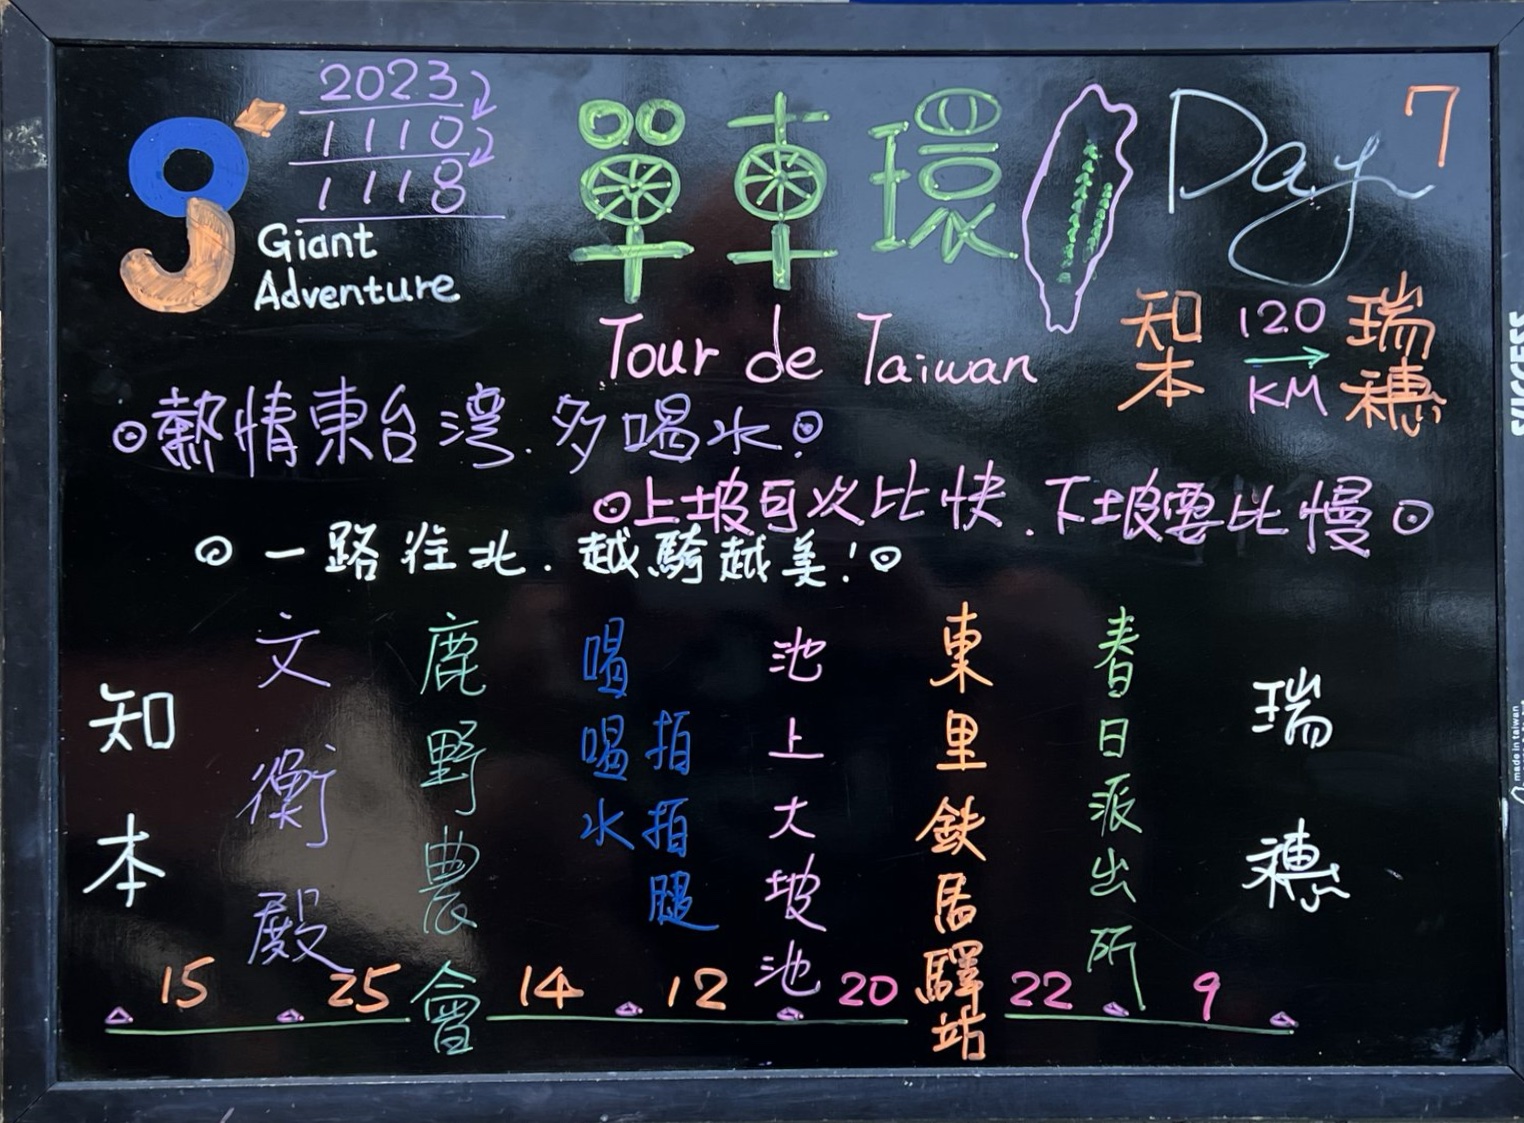 2023
1110
1118
Giant
Adventure
單車環
Day 7
Tour de Taiwan
知本 120 KM 瑞穗
熱情東台灣.多喝水!
上坡可以比快.下坡要比慢
一路往北.越騎越美!
知本
文衡殿
鹿野農會
喝喝水
拍拍腿
池上大坡池
東里鉄馬驛站
春日派出所
瑞穗
15 25 14 12 20 22 9
SUCCESS
made in taiwan